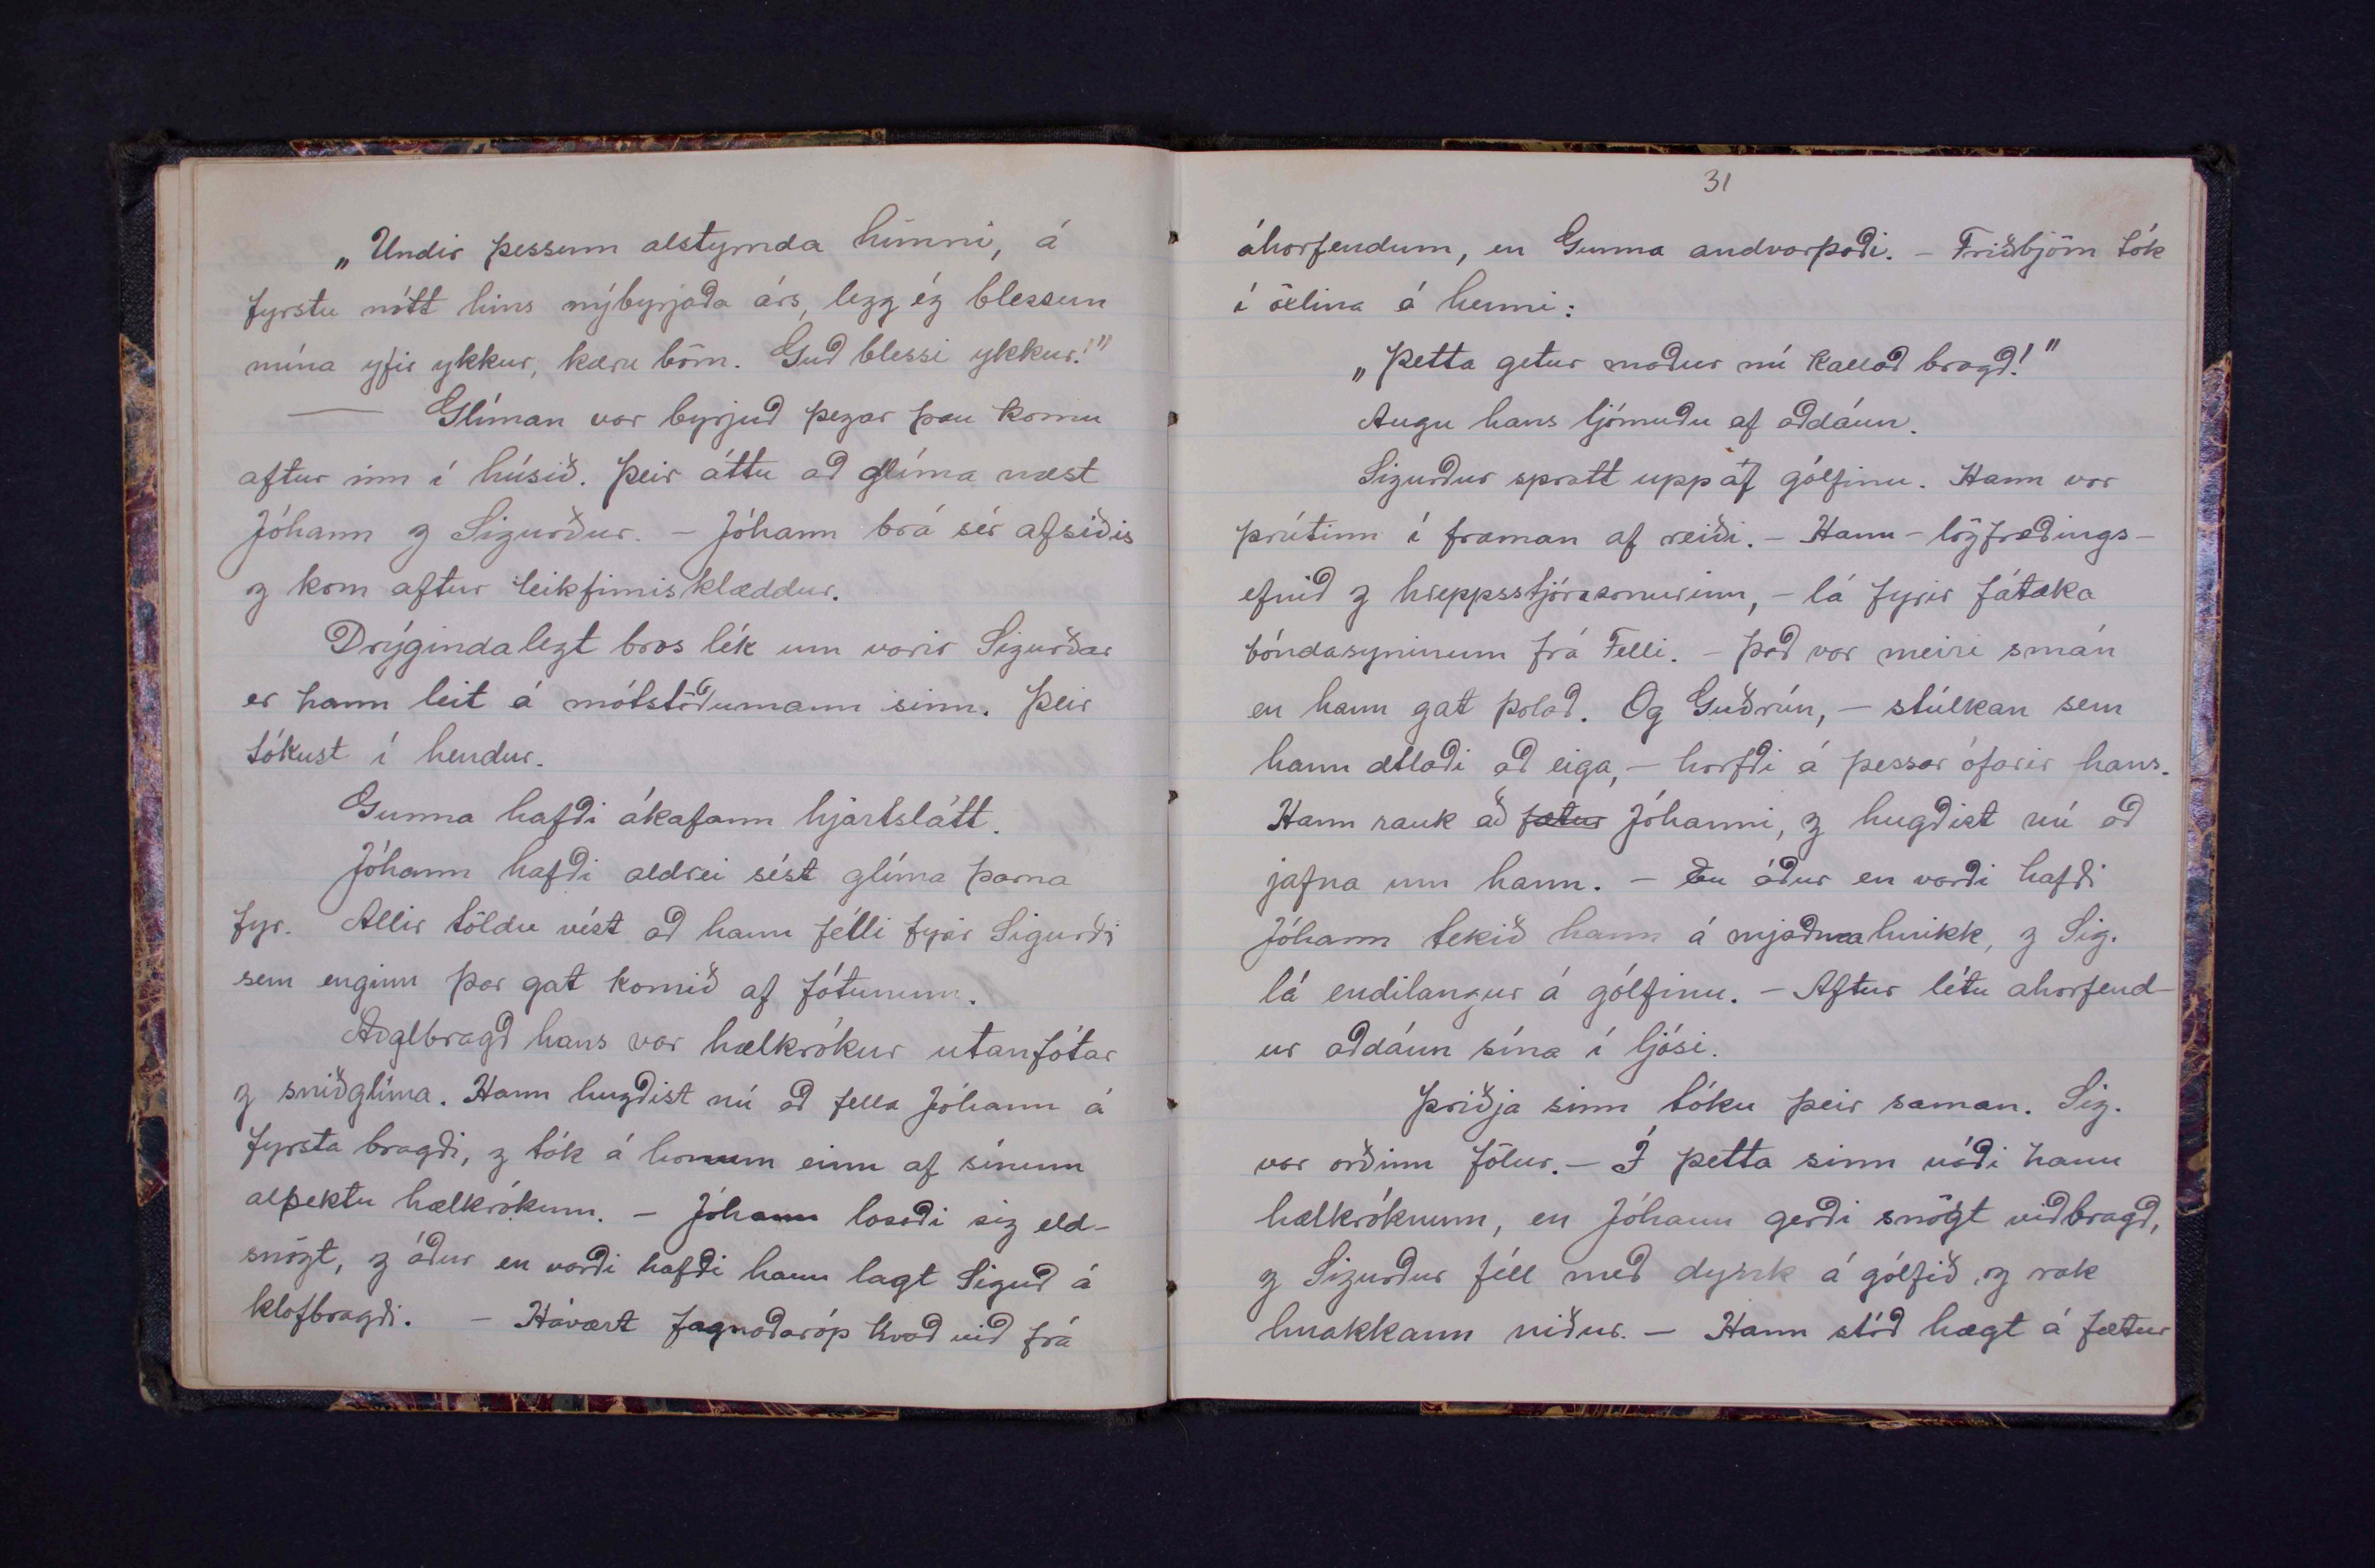 „Undir þessum alstyrnda himni, á
fyrstu nótt hins nýbyrjaða árs, legg ég blessun
mína yfir ykkur, kæru börn. Guð blessi ykkur!"
— Glíman var byrjuð þegar þau komu
aftur inn í húsið. Þeir áttu að glíma næst
Jóhann og Sigurður. - Jóhann brá sér afsiðis
og kom aftur leikfimisklæddur.
Drýgindalegt bros lék um varir Sigurðar
er hann leit á mótstöðumann sinn. Þeir
tókust í hendur.
Gunna hafði ákafann hjartslátt.
Jóhann hafði aldrei sést glíma þarna
fyr. Allir töldu vist að hann félli fyrir Sigurði
sem enginn þar gat komið af fótunum.
Aðalbragð hans var hælkrókur utanfótar
og sniðglíma. Hann hugðist nú að fella Jóhann á
fyrsta bragði, og tók á honum einn af sínum
alþektu hælkrókum. - Jóhann losaði sig eld-
snögt, og áður en varði hafði hann lagt Sigurð á
klofbragði. - Hávært fagnaðaróp kvað við frá
31
áhorfendum, en Gunna andvarpaði. - Friðbjörn tók
í öxlina á henni:
„Þetta getur maður nú kallað bragð!"
Augu hans ljómuðu af aðdáun.
Sigurður spratt upp af gólfinu. Hann var
þrútinn í framan af reiði. - Hann - lögfræðings-
efnið og hreppsstjórasonurinn, - lá fyrir fátæka
bóndasyninum frá Felli. - Það var meiri smán
en hann gat þolað. Og Guðrún, - stúlkan sem
hann ætlaði að eiga, - horfði á þessar ófarir hans.
Hann rauk að fætur Jóhanni, og hugðist nú að
jafna um hann. - En áður en varði hafði
Jóhann tekið hann á mjaðmahnikk, og Sig.
lá endilangur á gólfinu. - Aftur létu ahorfend-
ur aðdáun sína í ljósi.
Þriðja sinn tóku þeir saman. Sig.
var orðinn fölur. - Í þetta sinn náði hann
hælkróknum, en Jóhann gerði snögt viðbragð,
og Sigurður féll með dynk á gólfið, og rak
hnakkann niður. - Hann stóð hægt á fætur